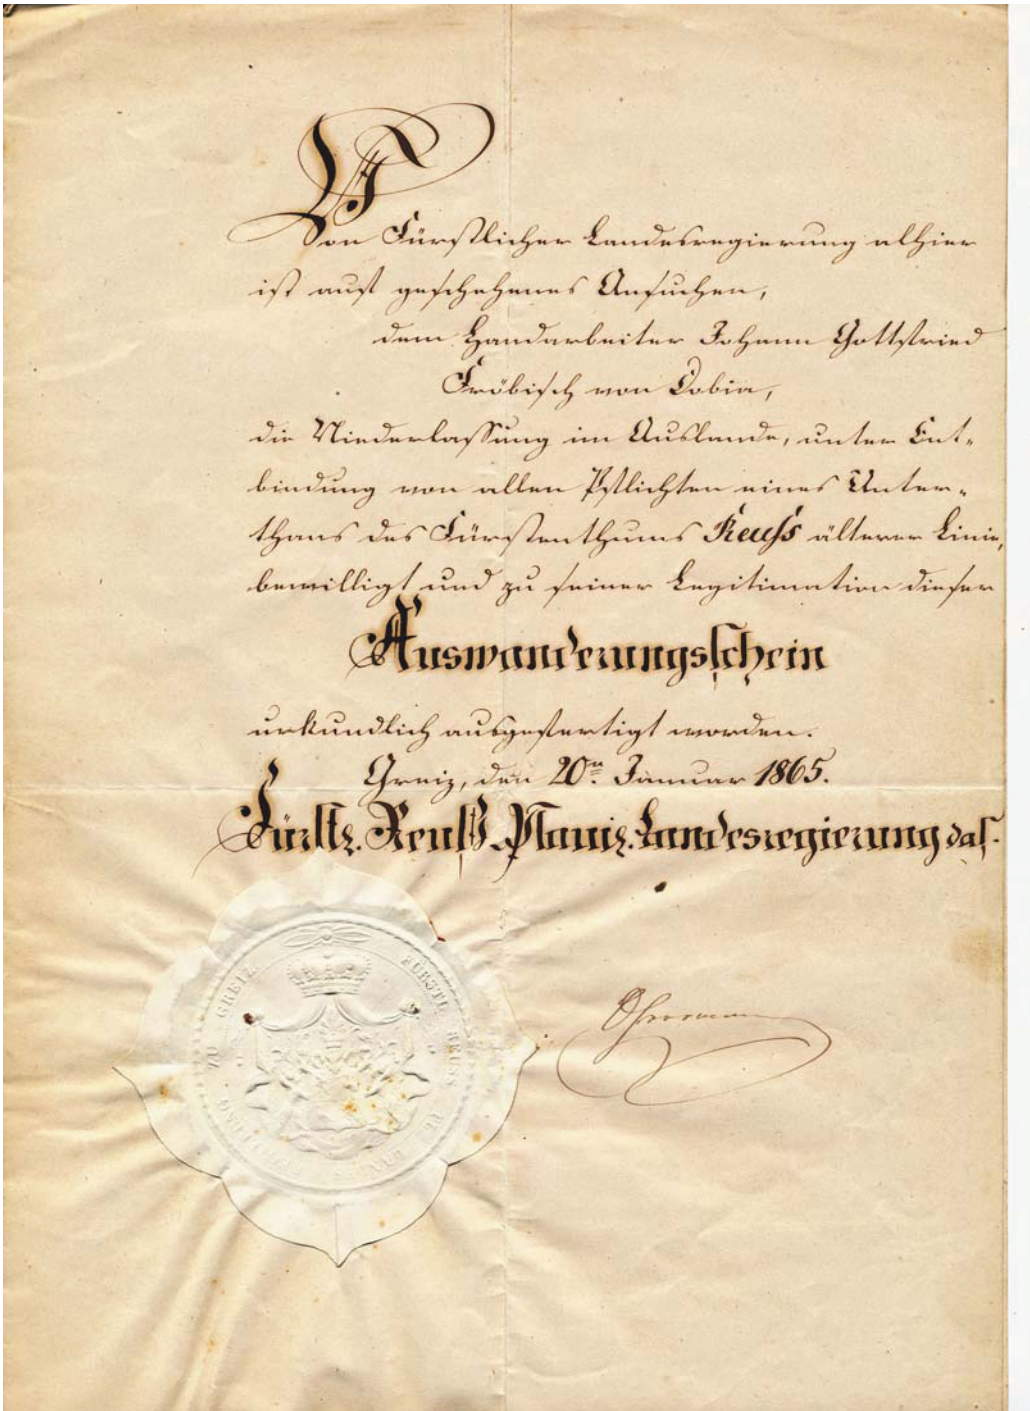 Von Fürstlicher Landesregierung alhier
ist auf geschehenes Ansuchen,
dem Handarbeiter Johann Gottfried
Fröbisch von Dobia,
die Niederlassung im Auslande, unter Ent-
bindung von allen Pflichten eines Unter-
thans des Fürstenthums Reuss älterer Linie,
bewilligt und zu seiner Legitimation dieser
Auswanderungsschein
urkundlich ausgefertigt worden.
Greiz, den 20n Januar 1865.
Fürstl. Reuß. Plauiz. Landesregierung das.
FÜRSTL. REUSS
ZU GREIZ